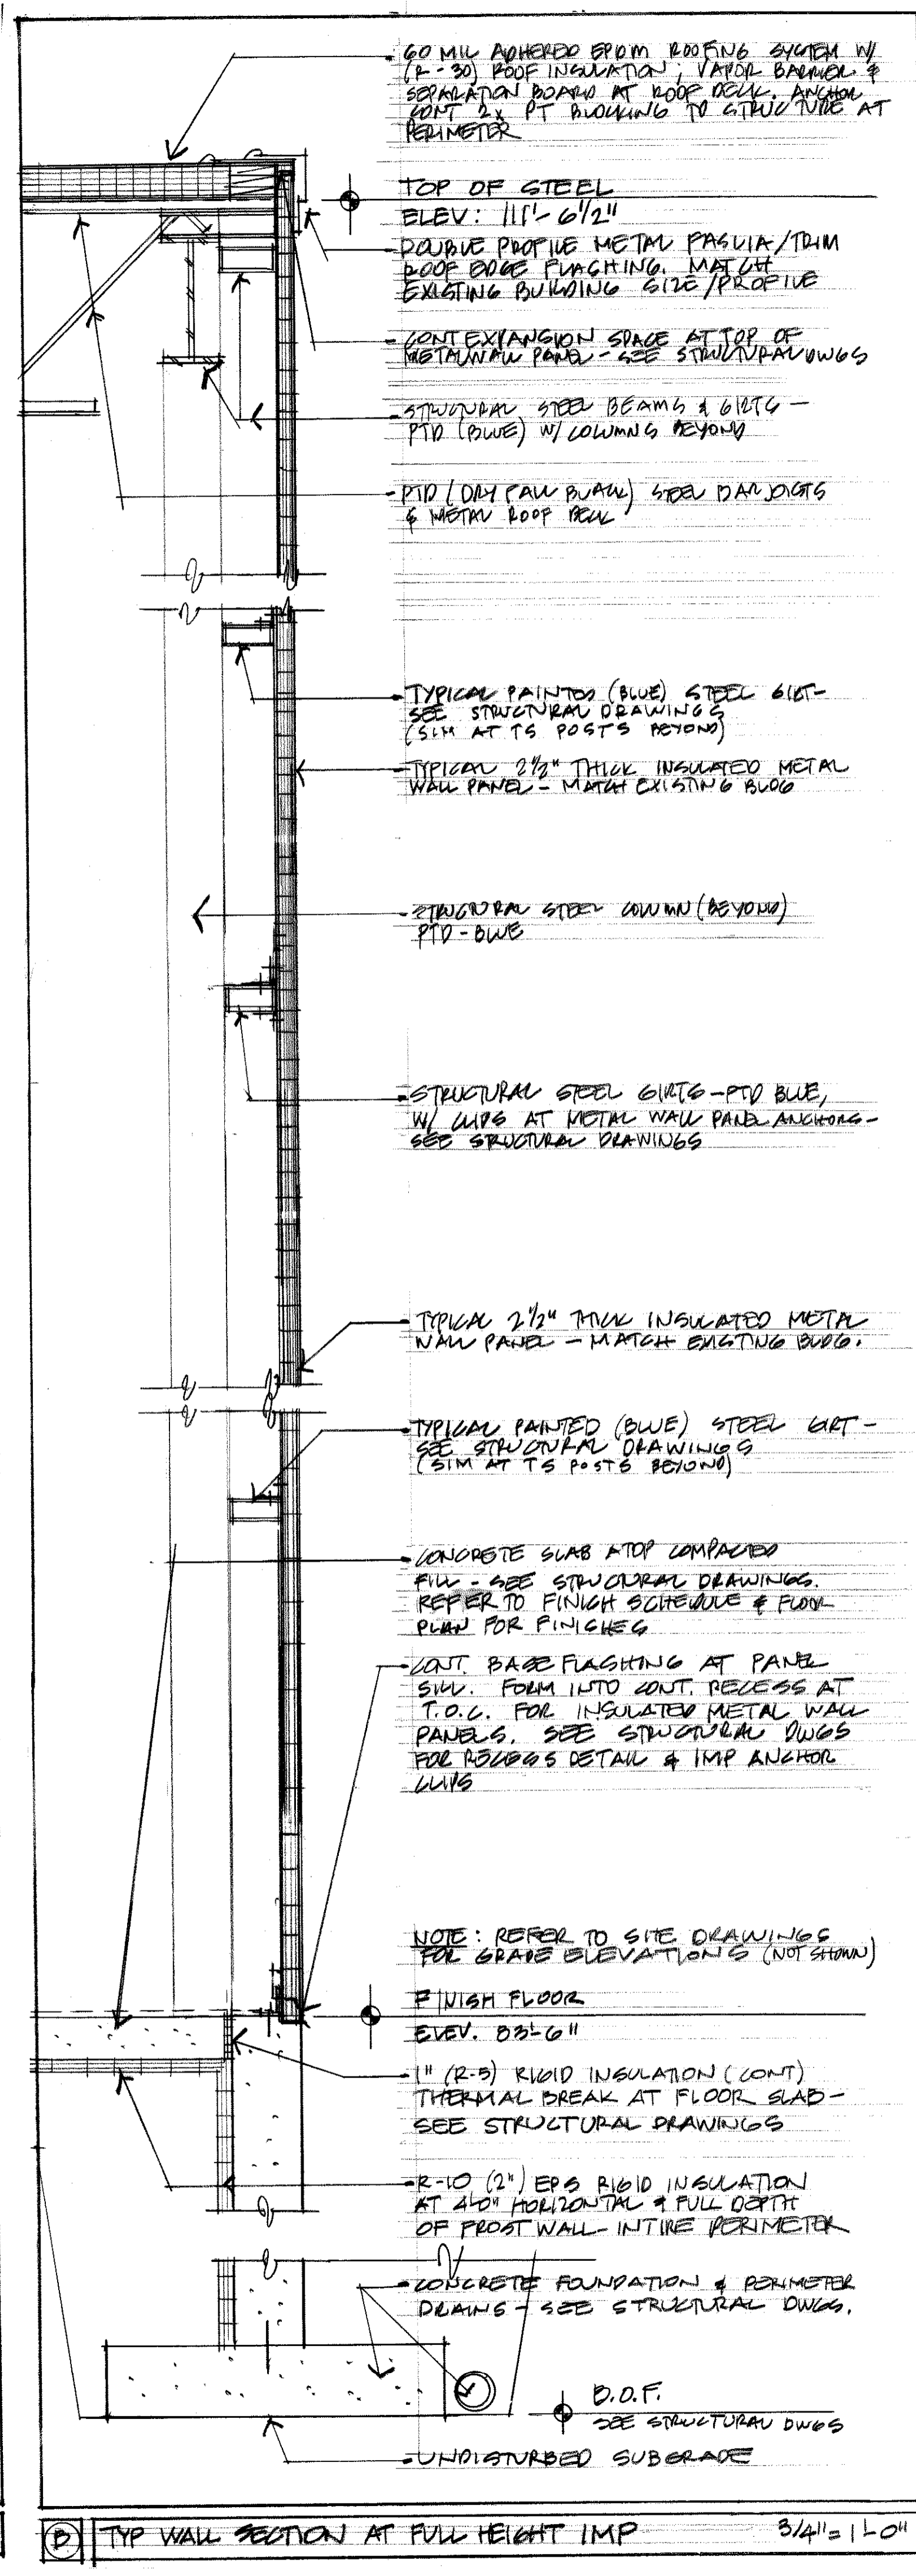 60 MIL ADHERED EPDM ROOFING SYSTEM W/
(R-30) ROOF INSULATION, VAPOR BARRIER &
SEPARATION BOARD AT ROOF DECK. ANCHOR
CONT 2x PT BLOCKING TO STRUCTURE AT
PERIMETER
TOP OF STEEL
ELEV: 111'-6 1/2"
DOUBLE PROFILE METAL FASCIA/TRIM
ROOF EDGE FLASHING. MATCH
EXISTING BUILDING SIZE/PROFILE
CONT EXPANSION SPACE AT TOP OF
METAL WALL PANEL - SEE STRUCTURAL DWGS
STRUCTURAL STEEL BEAMS & GIRTS -
PTD (BLUE) W/ COLUMNS BEYOND
PTD (DRY FALL BLACK) STEEL BAR JOISTS
& METAL ROOF DECK
TYPICAL PAINTED (BLUE) STEEL GIRT -
SEE STRUCTURAL DRAWINGS
(SIM AT TS POSTS BEYOND)
TYPICAL 2 1/2" THICK INSULATED METAL
WALL PANEL - MATCH EXISTING BLDG
STRUCTURAL STEEL COLUMN (BEYOND)
PTD - BLUE
STRUCTURAL STEEL GIRTS - PTD BLUE,
W/ CLIPS AT METAL WALL PANEL ANCHORS -
SEE STRUCTURAL DRAWINGS
TYPICAL 2 1/2" THICK INSULATED METAL
WALL PANEL - MATCH EXISTING BLDG.
TYPICAL PAINTED (BLUE) STEEL GIRT -
SEE STRUCTURAL DRAWINGS
(SIM AT TS POSTS BEYOND)
CONCRETE SLAB ATOP COMPACTED
FILL - SEE STRUCTURAL DRAWINGS.
REFER TO FINISH SCHEDULE & FLOOR
PLAN FOR FINISHES
CONT. BASE FLASHING AT PANEL
SILL. FORM INTO CONT. RECESS AT
T.O.C. FOR INSULATED METAL WALL
PANELS. SEE STRUCTURAL DWGS
FOR RECESS DETAIL & IMP ANCHOR
CLIPS
NOTE: REFER TO SITE DRAWINGS
FOR GRADE ELEVATIONS (NOT SHOWN)
FINISH FLOOR
ELEV. 83'-6"
1" (R-5) RIGID INSULATION (CONT)
THERMAL BREAK AT FLOOR SLAB -
SEE STRUCTURAL DRAWINGS
R-10 (2") EPS RIGID INSULATION
AT 4'-0" HORIZONTAL & FULL DEPTH
OF FROST WALL - INTIRE PERIMETER
CONCRETE FOUNDATION & PERIMETER
DRAINS - SEE STRUCTURAL DWGS.
B.O.F.
SEE STRUCTURAL DWGS
UNDISTURBED SUBGRADE
B TYP WALL SECTION AT FULL HEIGHT IMP 3/4" = 1'-0"